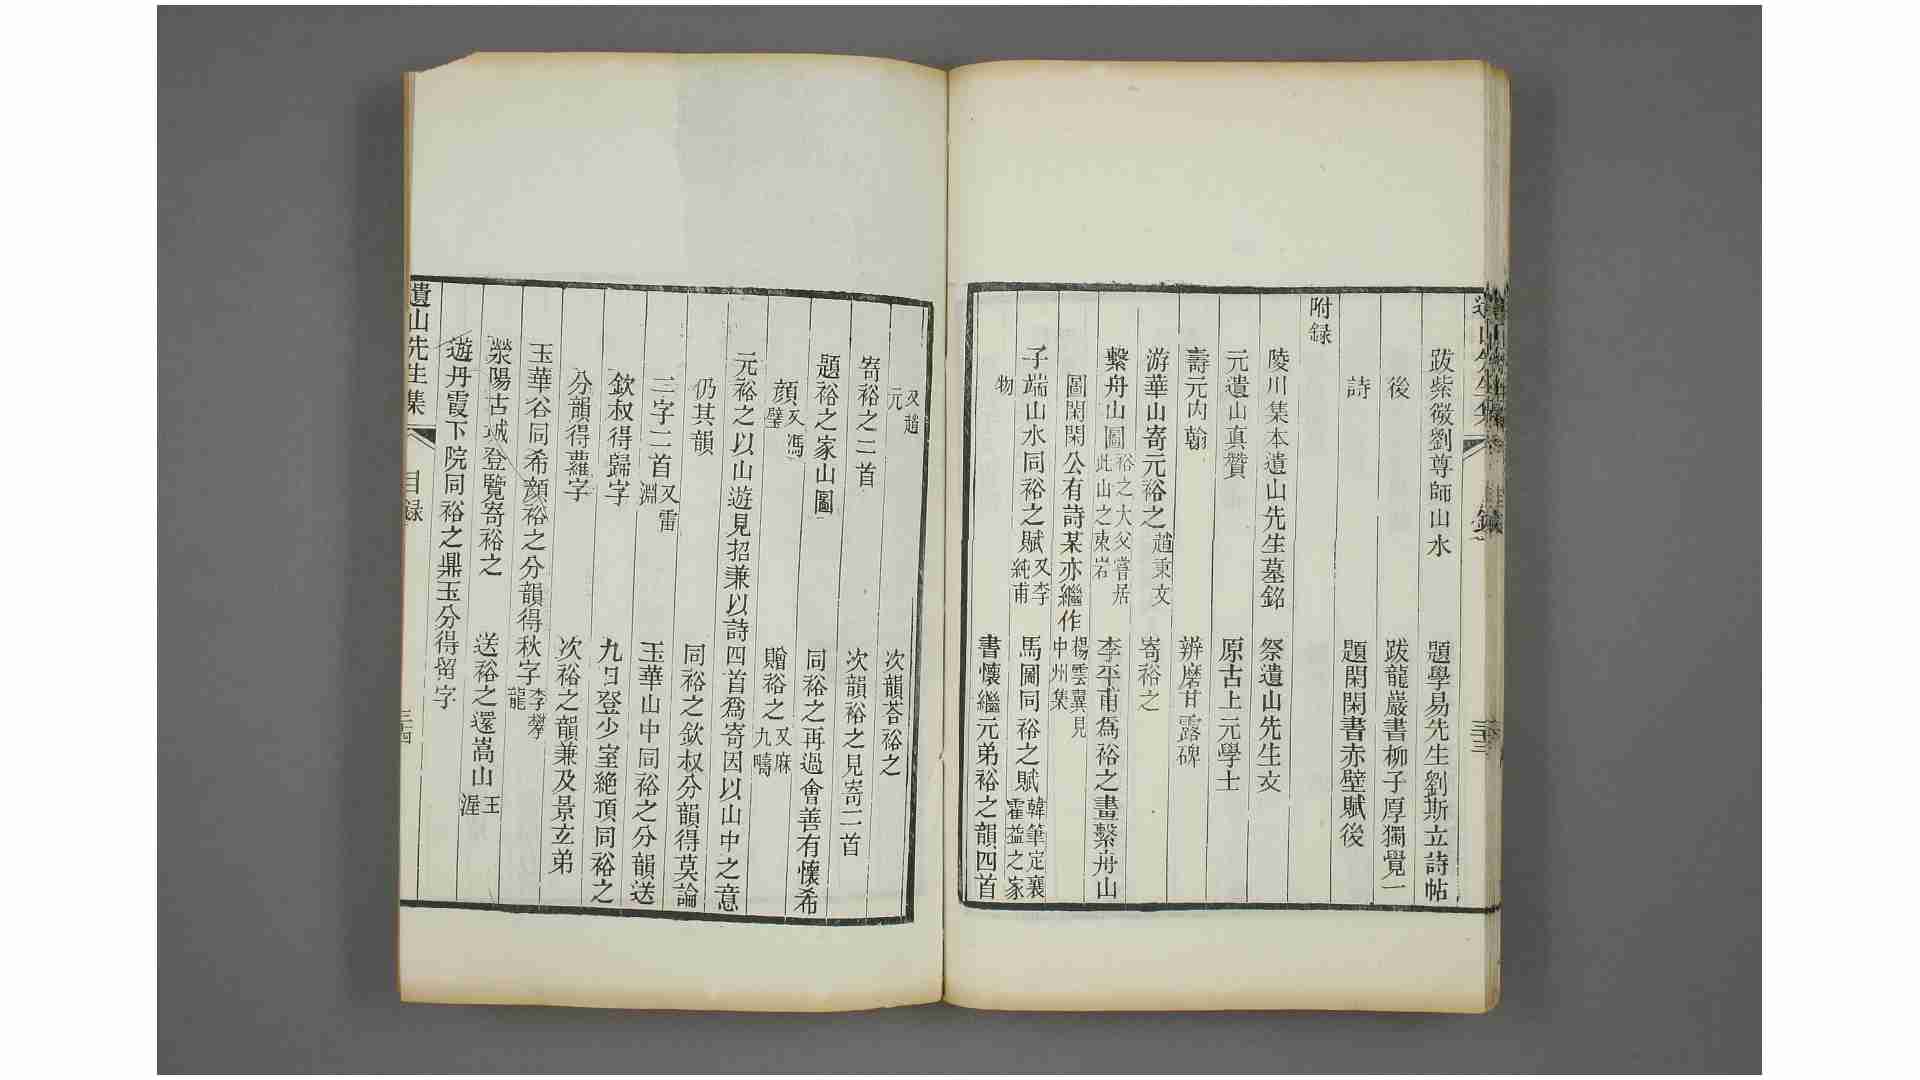 跋紫微劉尊師山水　題學易先生劉斯立詩帖
後　跋龍巖書柳子厚獨覺一
詩　題閑閑書赤壁賦後
附録
陵川集本遺山先生墓銘　祭遺山先生文
元遺山真贊　原古上元學士
壽元内翰　辨磨甘露碑
游華山寄元裕之趙秉文　寄裕之
繫舟山圖裕之大父嘗居此山之東岩　李平甫爲裕之畫繫舟山
圖閑閑公有詩某亦繼作楊雲翼見中州集
子端山水同裕之賦又李純甫　馬圖同裕之賦韓筆定襄霍益之家
物　書懷繼元弟裕之韻四首
又趙元　次韻荅裕之
寄裕之二首　次韻裕之見寄二首
題裕之家山圖　同裕之再過會善有懷希
顔又馮璧　贈裕之又麻九疇
元裕之以山遊見招兼以詩四首爲寄因以山中之意
仍其韻　同裕之欽叔分韻得莫論
二字二首又雷淵　玉華山中同裕之分韻送
欽叔得歸字　九日登少室絶頂同裕之
分韻得蘿字　次裕之韻兼及景玄弟
玉華谷同希顔裕之分韻得秋字李攀龍
滎陽古城登覽寄裕之　送裕之還嵩山王渥
遊丹霞下院同裕之鼎玉分得留字
遺山先生集　目録　三十四